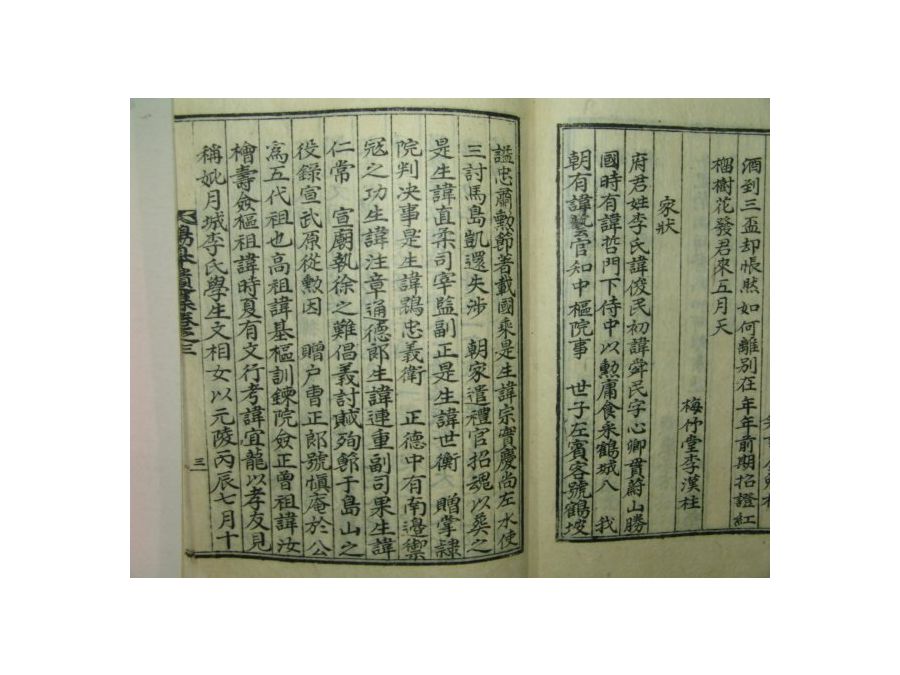 酒到三盃却悵然如何離別在年年前期招證紅
榴樹花發君來五月天
梅竹堂李漢柱
家狀
府君姓李氏諱俊民初諱舜民字心卿貫蔚山勝
國時有諱哲門下侍中以勲庸食采鶴城入 我
朝有諱藝官知中樞院事 世子左賓客號鶴坡
謚忠肅勲節著載國乘是生諱宗實慶尚左水使
三討馬島凱還失涉 朝家遣禮官招魂以葬之
是生諱直柔司宰監副正是生諱世衡 贈掌隷
院判决事是生諱鵾忠義衛 正德中有南邊禦
冦之功生諱注章通德郎生諱連重副司果生諱
仁常 宣廟執徐之難倡義討賊殉節于島山之
役錄宣武原從勲因 贈户曹正郎號愼庵於公
爲五代祖也高祖諱基樞訓鍊院僉正曾祖諱汝
檜壽僉樞祖諱時夏有文行考諱宜龍以孝友見
稱妣月城李氏學生文相女以元陵丙辰七月十
三